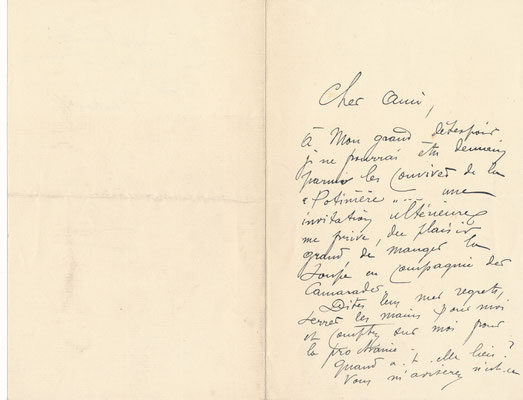 Cher Ami,
à mon grand désespoir
je ne pourrai être demain
parmi les convives de la
"Potinière"... une
invitation ultérieure
me prive, du plaisir
grand de manger la
soupe en compagnie des
Camarades.
Dites leur mes regrets,
serrez les mains pour moi
et comptez sur moi pour
la prochaine.
quand a-t-elle lieu?
Vous m'aviserez n'est-ce